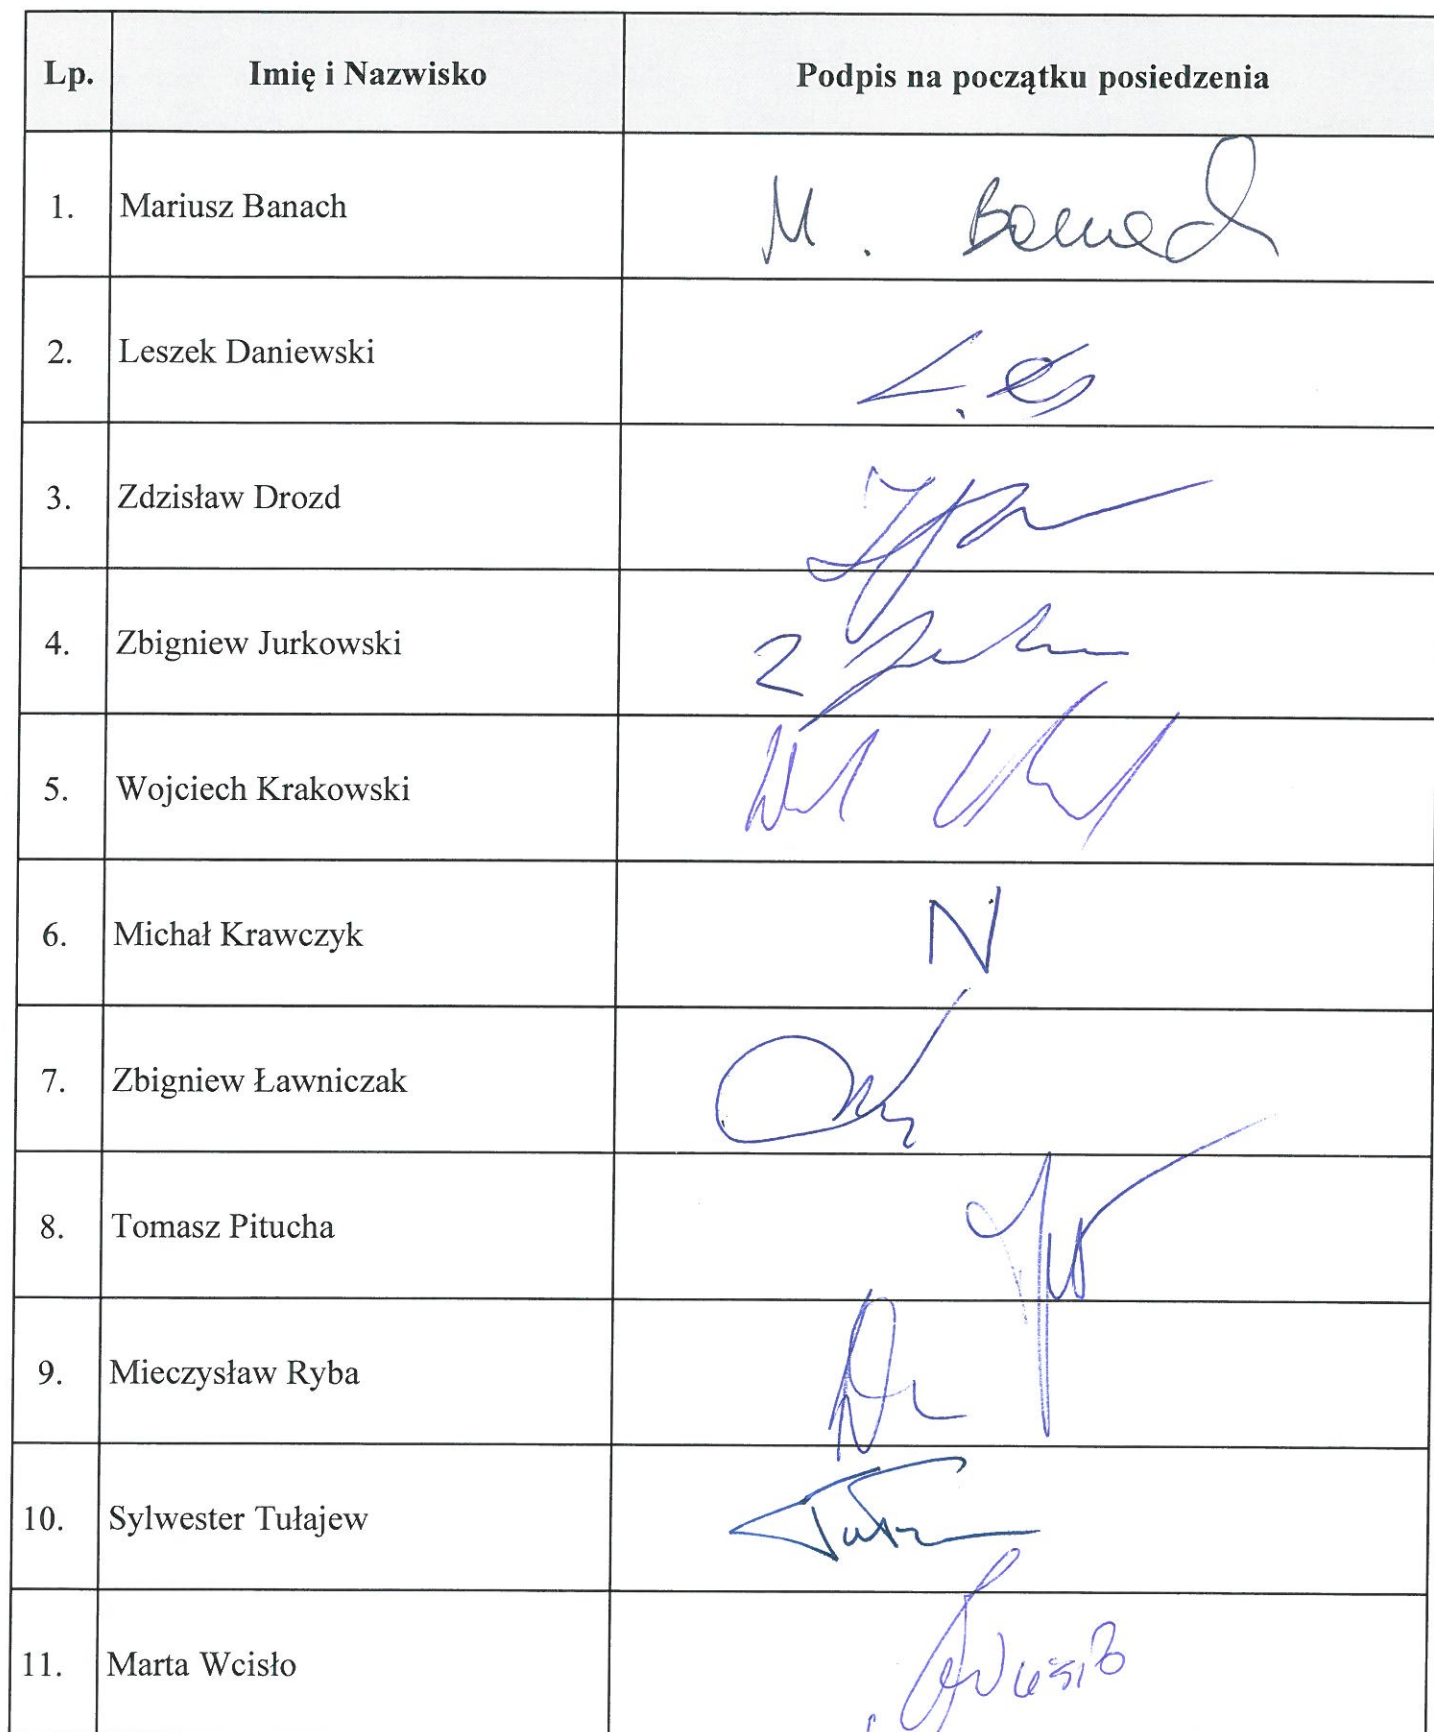 Lp. Imię i Nazwisko Podpis na początku posiedzenia
1. Mariusz Banach M. Banach
2. Leszek Daniewski
3. Zdzisław Drozd
4. Zbigniew Jurkowski
5. Wojciech Krakowski
6. Michał Krawczyk N
7. Zbigniew Ławniczak
8. Tomasz Pitucha
9. Mieczysław Ryba
10. Sylwester Tułajew
11. Marta Wcisło